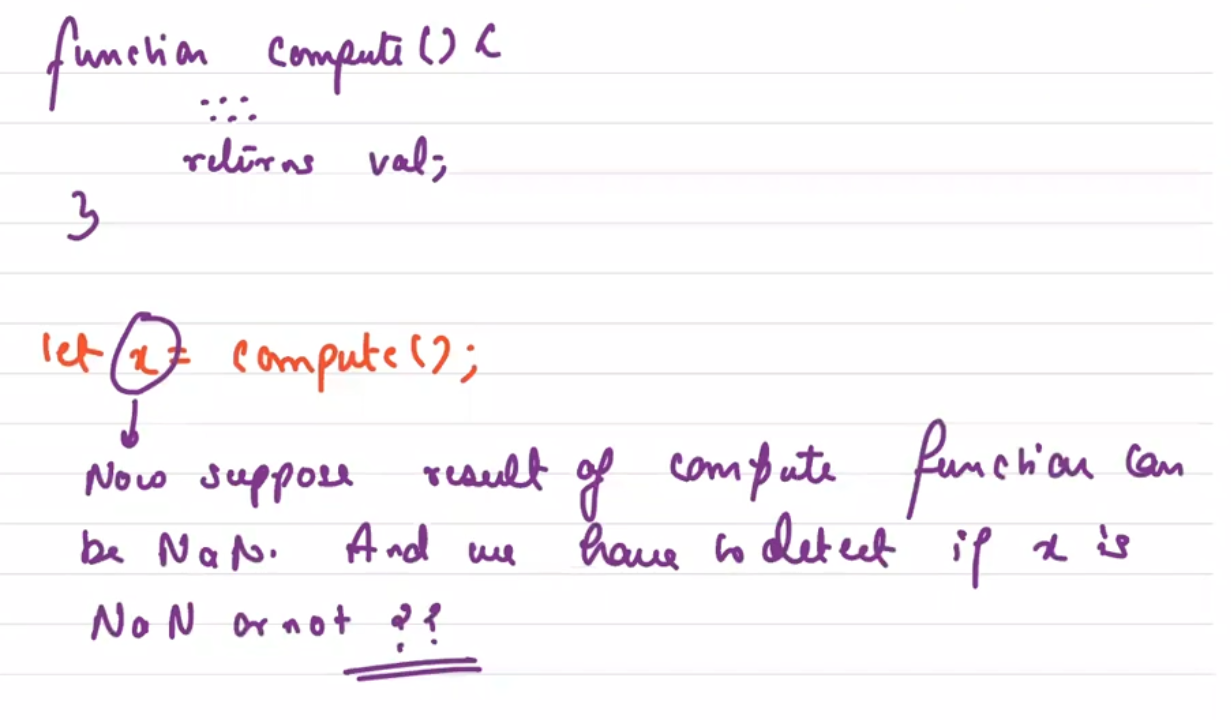 function compute() {
::::
returns val;
}
let x = compute();
Now suppose result of compute function can
be NaN. And we have to detect if x is
NaN or not ??